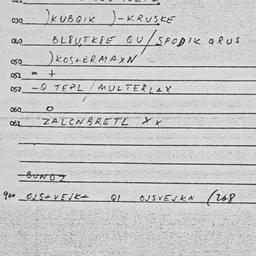 030 )KUBQIK )-KRUSKE
040 BLBUTKBE GU/SPODIK QRUS
050 )KOSTERMAXN -
051 - +
052 -Q TEPL/MULTERLAX
060 O
061 ZALCNBRETL XX
BUNDZ
900 OJSTVEJKT QI OJSVEJKN (268